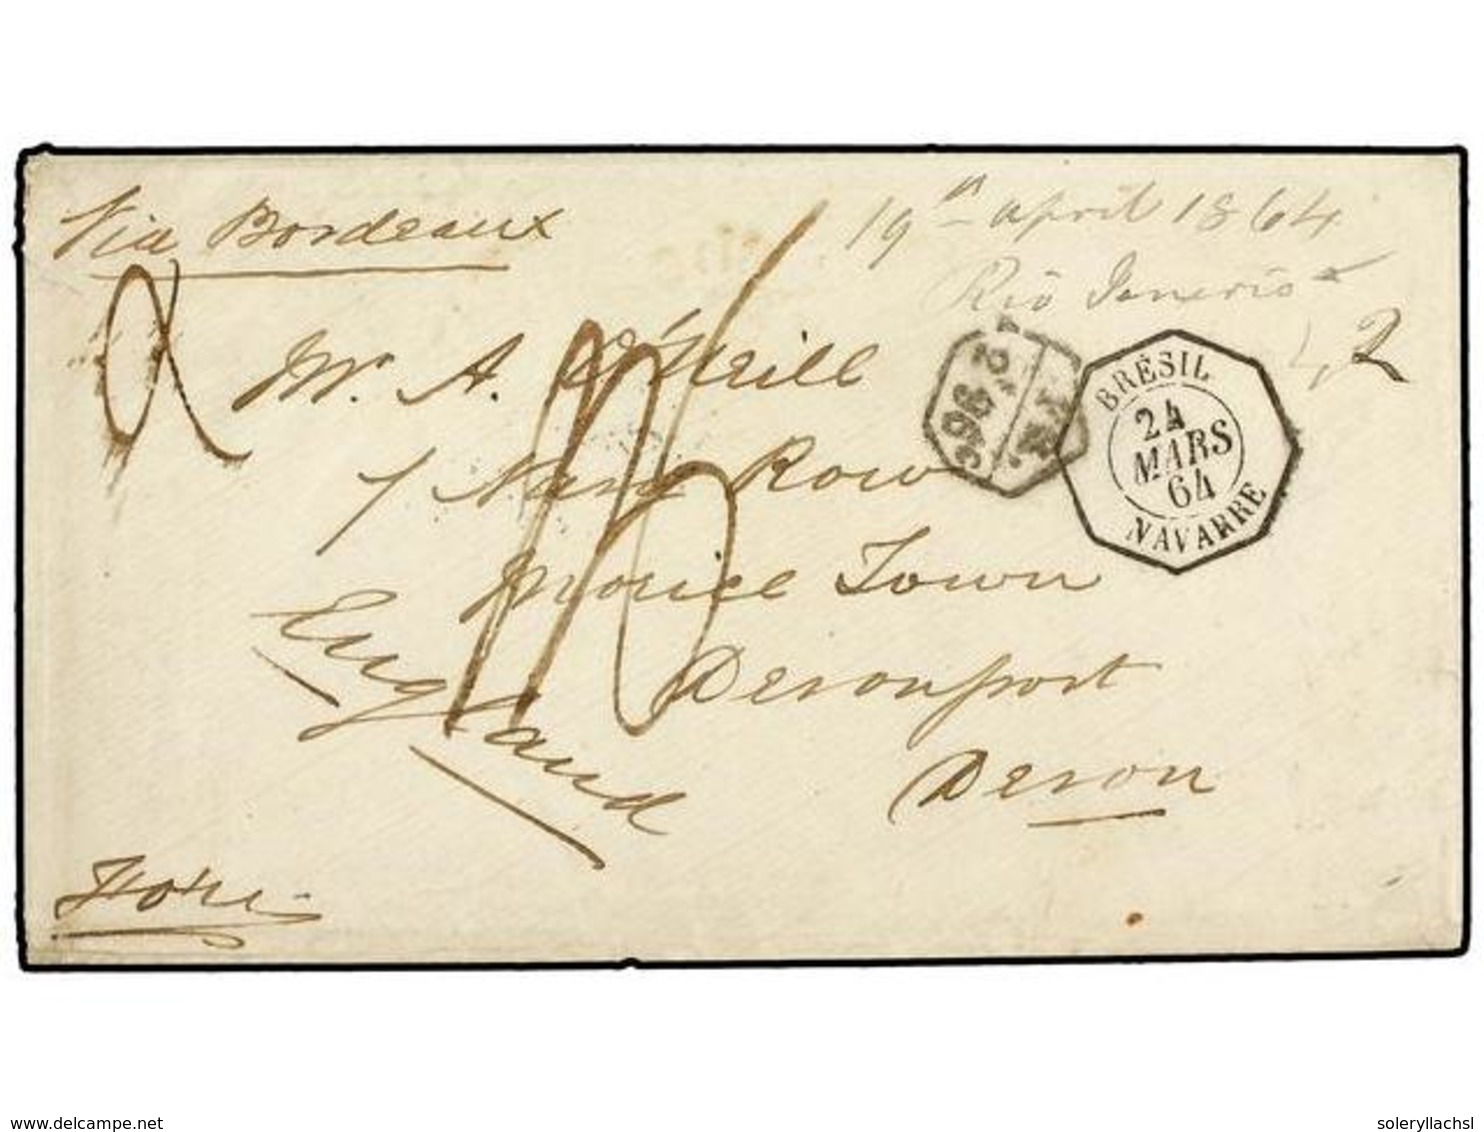 Via Bordeaux
19th april 1864
Rio Janerio
2
Mr. A. O'Neill
1 Navy Row
Morice Town
Devonport
Devon
England
BRÉSIL
24
MARS
64
NAVARRE
www.delcampe.net
soleryllachsl